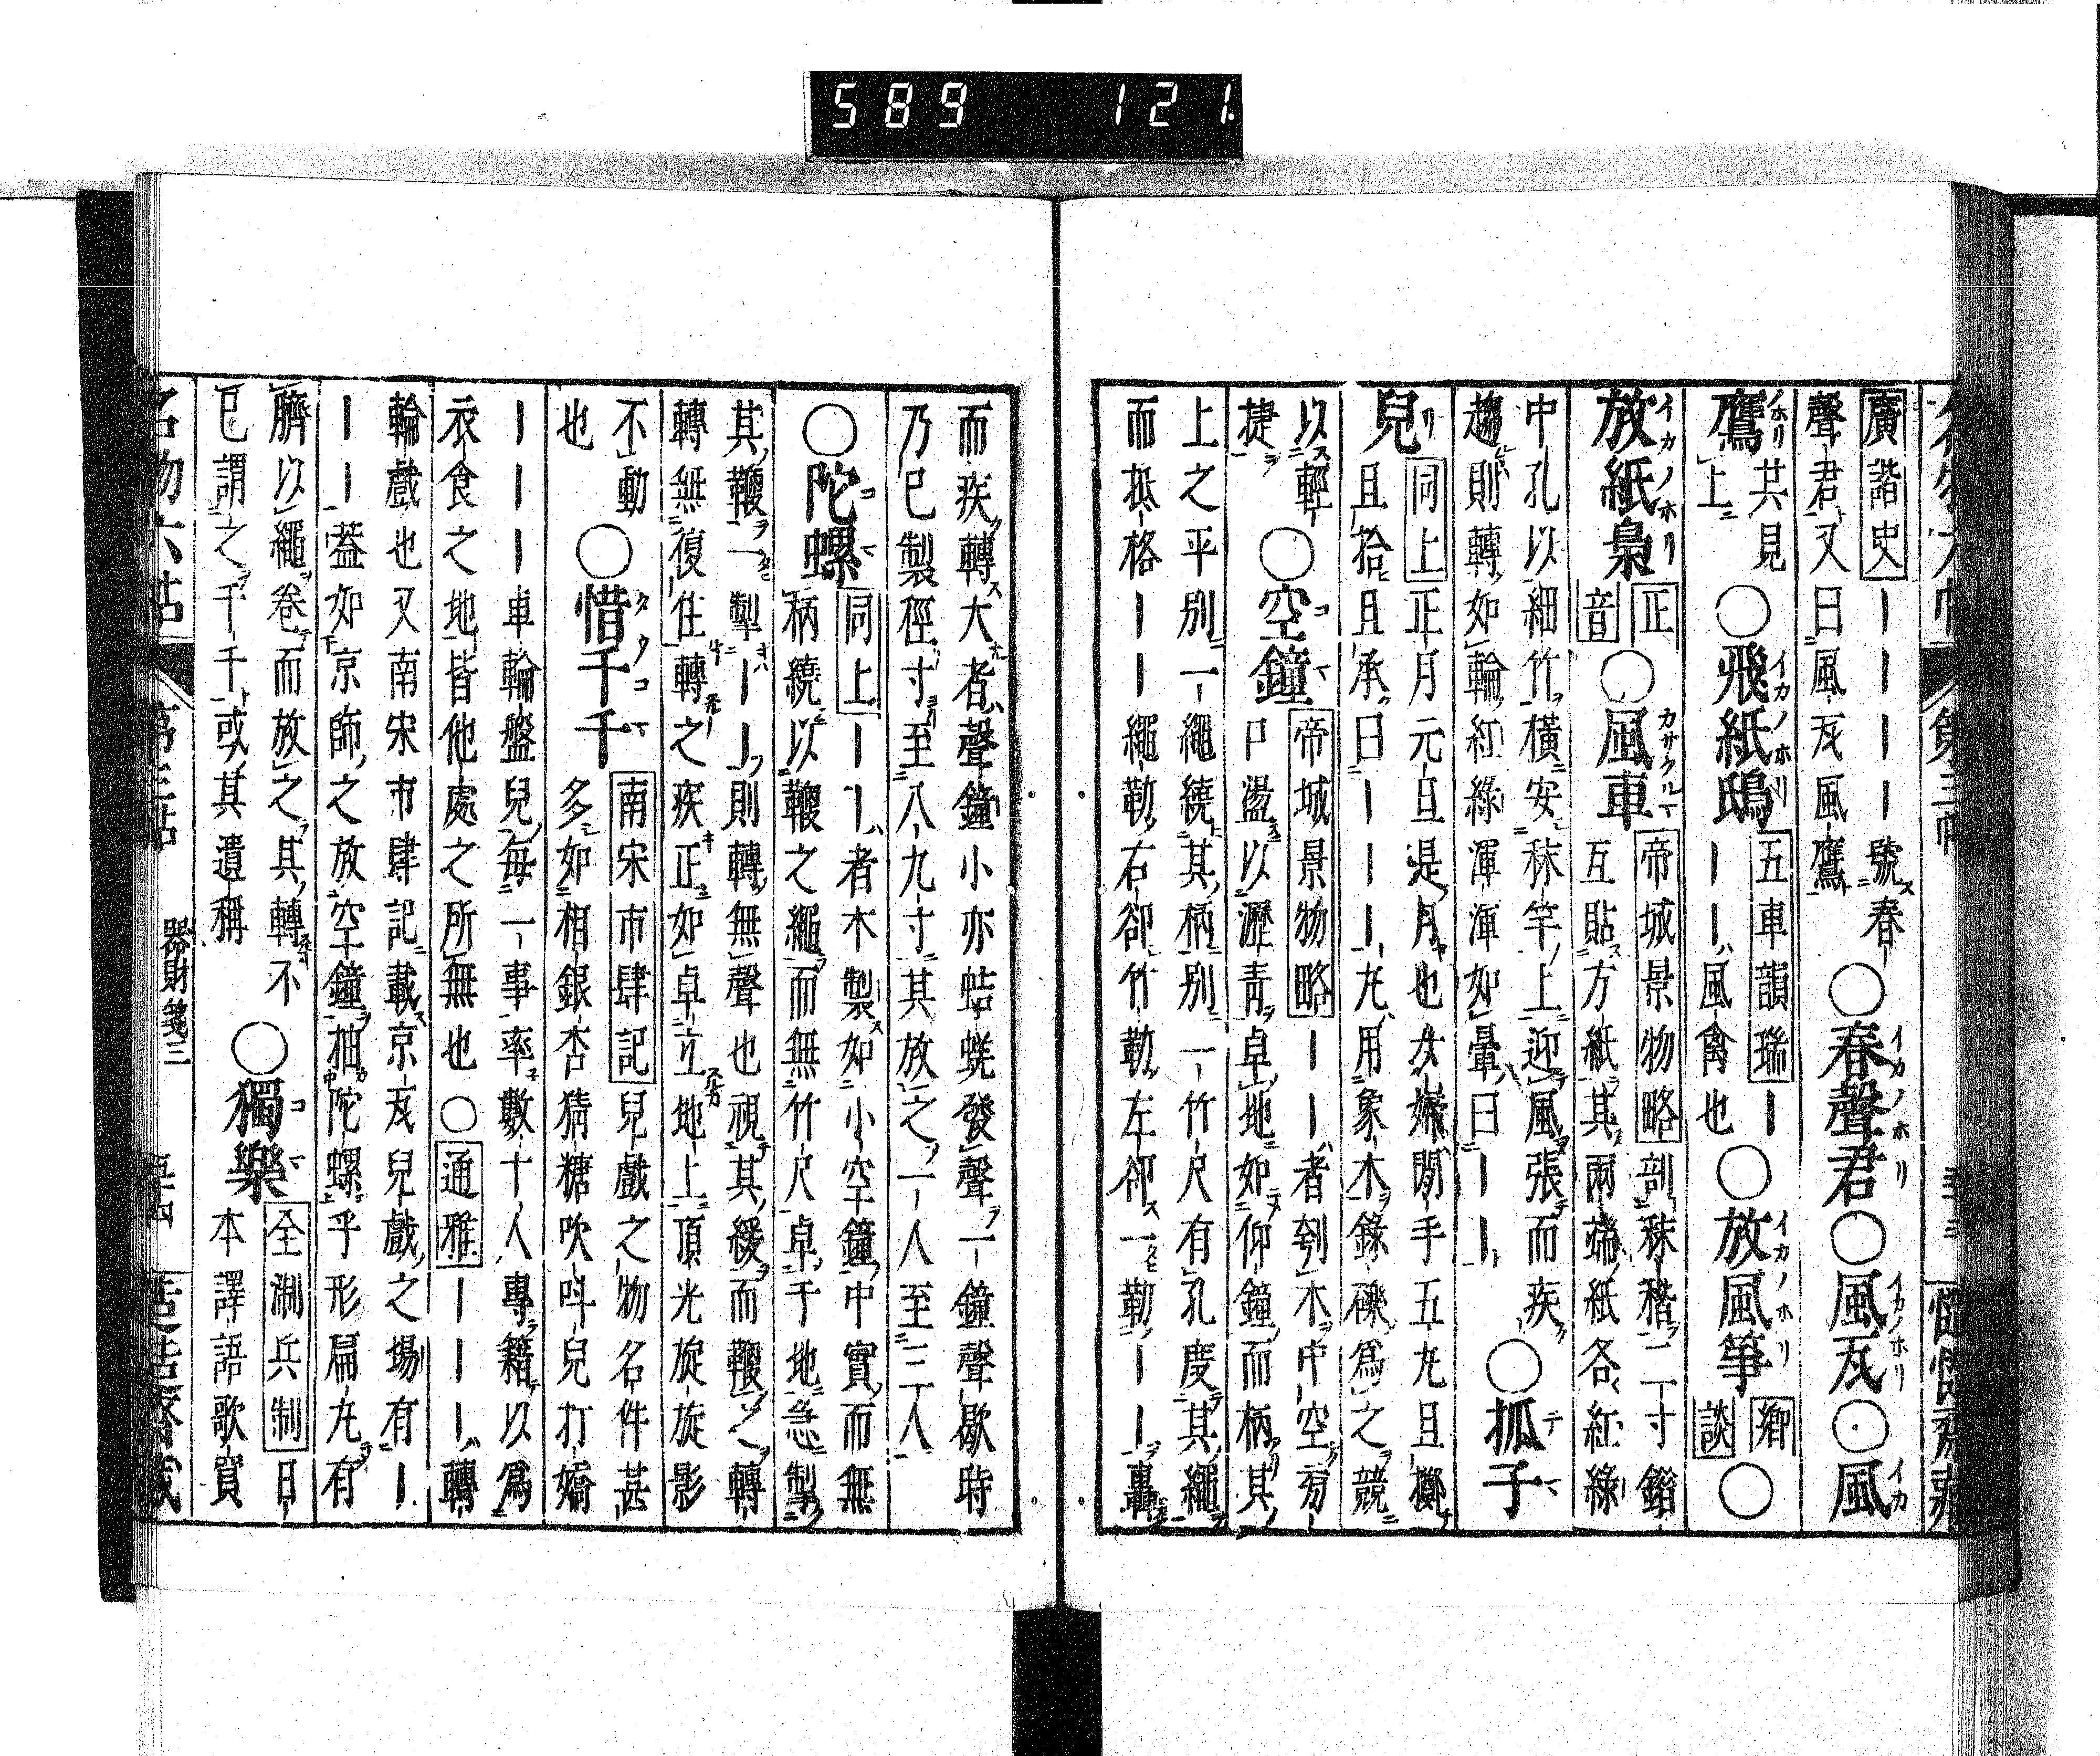 廣諧史｜｜｜｜號ス春
聲君又曰風友風鷹
○春聲君イカノホリ○風友イカノホリ○風イカ
鷹ホリ
其見
上
○飛紙鴟イカノホリ
五車韻瑞｜
｜｜風禽也
○放風箏イカノホリ
鄉
談
○
放紙梟イカノホリ
正
音
○風車カサクルマ
帝城景物略剖秫稭二寸錯
互貼方紙其兩端紙各紅綠
中孔以細竹橫安秫竿上迎風張而疾
趨則轉如輪紅綠渾渾如暈曰｜｜
○抓子
兒
同上正月元旦是月也女婦閒手五丸且擲
且拾且承曰｜｜｜丸用象木銀礫爲之競
以輕
捷
○空鐘コマ
帝城景物略｜｜者刳木中空旁
口盪以瀝青卓地如仰鐘而柄其
上之平別一繩繞其柄別一竹尺有孔度其繩
而抵格｜｜繩勒右卻竹勒左卻一勒｜｜轟
而疾轉大者聲鐘小亦蛣蜣發聲一鐘聲歇時
乃已製徑寸至八九寸其放之一人至三人
○陀螺コマ
同上｜｜者木製如小空鐘中實而無
柄繞以鞭之繩而無竹尺卓于地急掣
其鞭一掣｜｜則轉無聲也視其緩而鞭之轉
轉無復住轉之疾正如卓立地上頂光旋旋影
不動
也
○惜千千
南宋市肆記兒戲之物名件甚
多如相銀杏猜糖吹叫兒打嬌
｜｜｜車輪盤兒每一事率數十人專籍以爲
衣食之地皆他處之所無也○通雅｜｜｜轉
輪戲也又南宋市肆記載京友兒戲之場有｜
｜｜蓋如京師之放空鐘抽陀螺乎形扁丸有
臍以繩卷而放之其轉不
已謂之千千或其遺稱
○獨樂コマ
全淛兵制日
本譯語歌寶
器財箋三